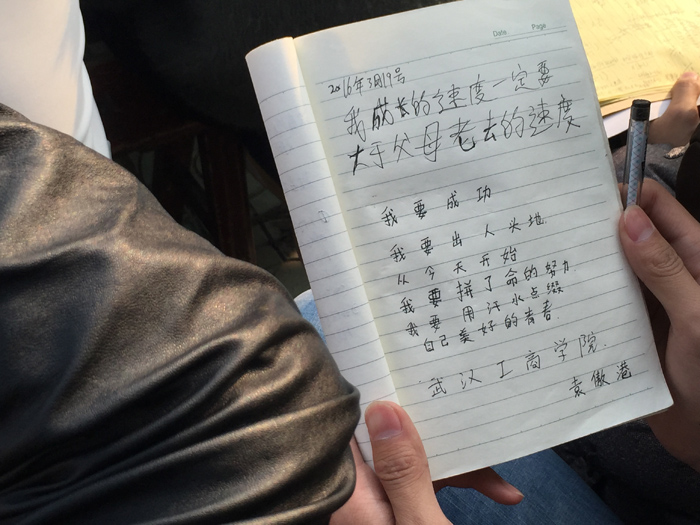 Date Page
2016年3月19号
我成长的速度一定要
大于父母老去的速度
我要成功
我要出人头地.
从今天开始
我要拼了命的努力.
我要用汗水点缀
自己美好的青春.
武汉工商学院.
袁傲港